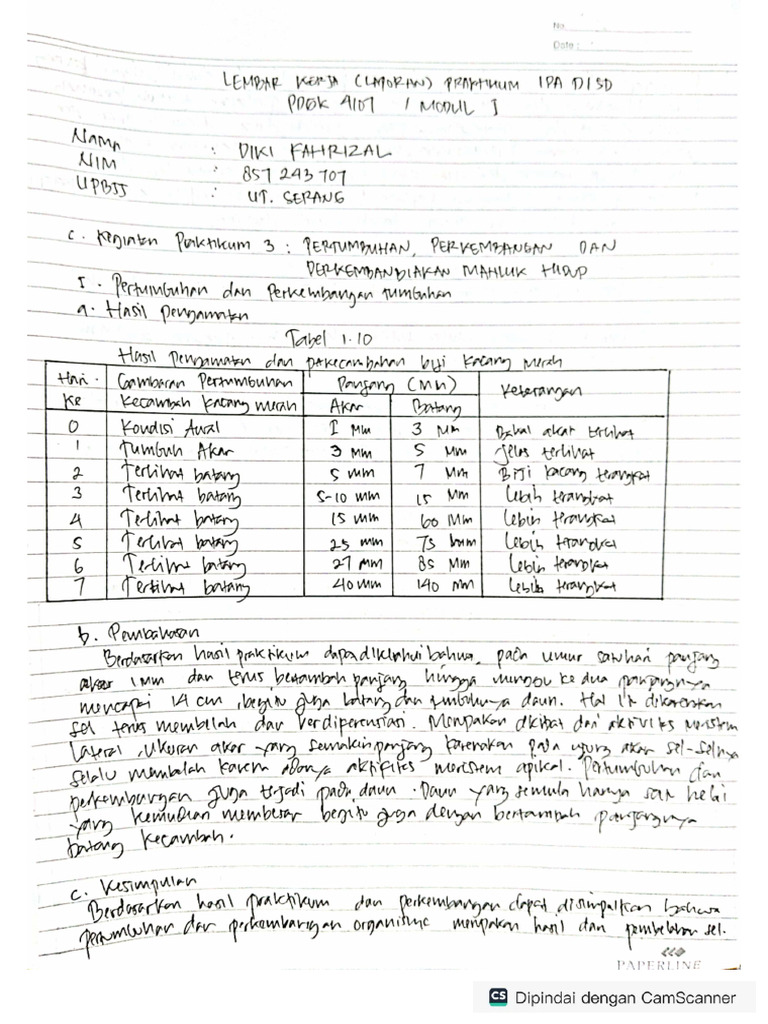 No
Date :
LEMBAR KERJA (LAPORAN) PRAKTIKUM IPA DI SD
PDGK 4107 / MODUL I
Nama : DIKI FAHRIZAL
NIM : 857 243 707
UPBJJ : UT. SERANG
C. Kegiatan Praktikum 3 : PERTUMBUHAN, PERKEMBANGAN DAN
PERKEMBANGBIAKAN MAHLUK HIDUP
I. Pertumbuhan dan Perkembangan tumbuhan
a. Hasil Pengamatan
Tabel 1.10
Hasil Pengamatan dan perkecambahan biji kacang merah
Hari Ke Gambaran Pertumbuhan Kecambah kacang merah Panjang (Mm) Akar Batang Keterangan
0 Kondisi Awal 1 Mm 3 Mm Bakal akar terlihat
1 Tumbuh Akar 3 mm 5 Mm Jelas terlihat
2 Terlihat batang 5 mm 7 Mm Biji kacang terangkat
3 Terlihat batang 5-10 mm 15 Mm Lebih terangkat
4 Terlihat batang 15 mm 60 Mm Lebih terangkat
5 Terlihat batang 25 mm 75 mm Lebih terangkat
6 Terlihat batang 27 Mm 85 Mm Lebih terangkat
7 Terlihat batang 40 mm 140 mm Lebih terangkat
b. Pembahasan
Berdasarkan hasil praktikum dapat diketahui bahwa, pada umur satu hari panjang
akar 1 mm dan terus bertambah panjang hingga minggu ke dua panjangnya
mencapai 14 cm, begitu juga batang dan tumbuhnya daun. Hal ini dikarenakan
sel terus membelah dan berdiperensiasi. Merupakan akibat dari aktivitas meristem
lateral, ukuran akar yang semakin panjang karenakan pada ujung akar sel-selnya
selalu membelah karena adanya aktifitas meristem apikal. Pertumbuhan dan
perkembangan juga terjadi pada daun. Daun yang semula hanya satu helai
yang kemudian membesar begitu juga dengan bertambah panjangnya
batang kecambah.
c. Kesimpulan
Berdasarkan hasil praktikum dan perkembangan dapat disimpulkan bahwa
pertumbuhan dan perkembangan organisme merupakan hasil dari pembelahan sel.
PAPERLINE
CS Dipindai dengan CamScanner